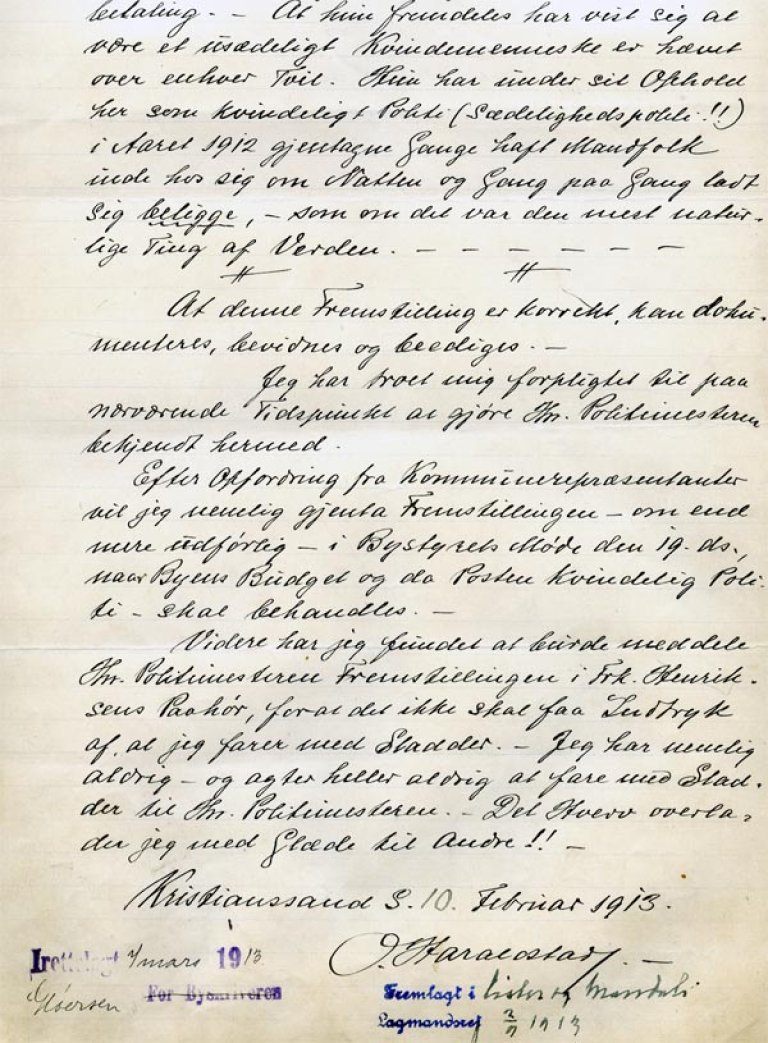 betaling. – At hun fremdeles har vist sig at
være et usædeligt Kvindemenneske er hævet
over enhver Tvil. Hun har under sit Ophold
her som kvindeligt Politi (Sædelighedspoliti!!)
i Aaret 1912 gjentagne Gange haft Mandfolk
inde hos sig om Natten og Gang paa Gang ladt
sig beligge, – som om det var den mest natur-
lige Ting af Verden. – – – – – –
At denne Fremstilling er korrekt, kan doku-
menteres, bevidnes og beediges. –
Jeg har troet mig forpligtet til paa
nærværende Tidspunkt at gjøre Hr. Politimesteren
bekjendt hermed.
Efter Opfordring fra Kommunerepræsentanter
vil jeg nemlig gjenta Fremstillingen – om end
mere udførlig – i Bystyrets Møde den 19. ds.,
naar Byens Budget og da Posten Kvindelig Poli-
ti – skal behandles. –
Videre har jeg fundet at burde meddele
Hr. Politimesteren Fremstillingen i Frk. Henrik-
sens Paahør, for at det ikke skal faa Indtryk
af, at jeg farer med Sladder. – Jeg har nemlig
aldrig – og agter heller aldrig at fare med Slad-
der til Hr. Politimesteren. – Det Hverv overla-
der jeg med Glæde til Andre!! –
Kristianssand S. 10. Februar 1913.
O. Haraldstad. –
Irettelagt 4/mars 1913
For Byskriveren
Fremlagt i Lister og Mandals
Lagmandsret 2/9 1913